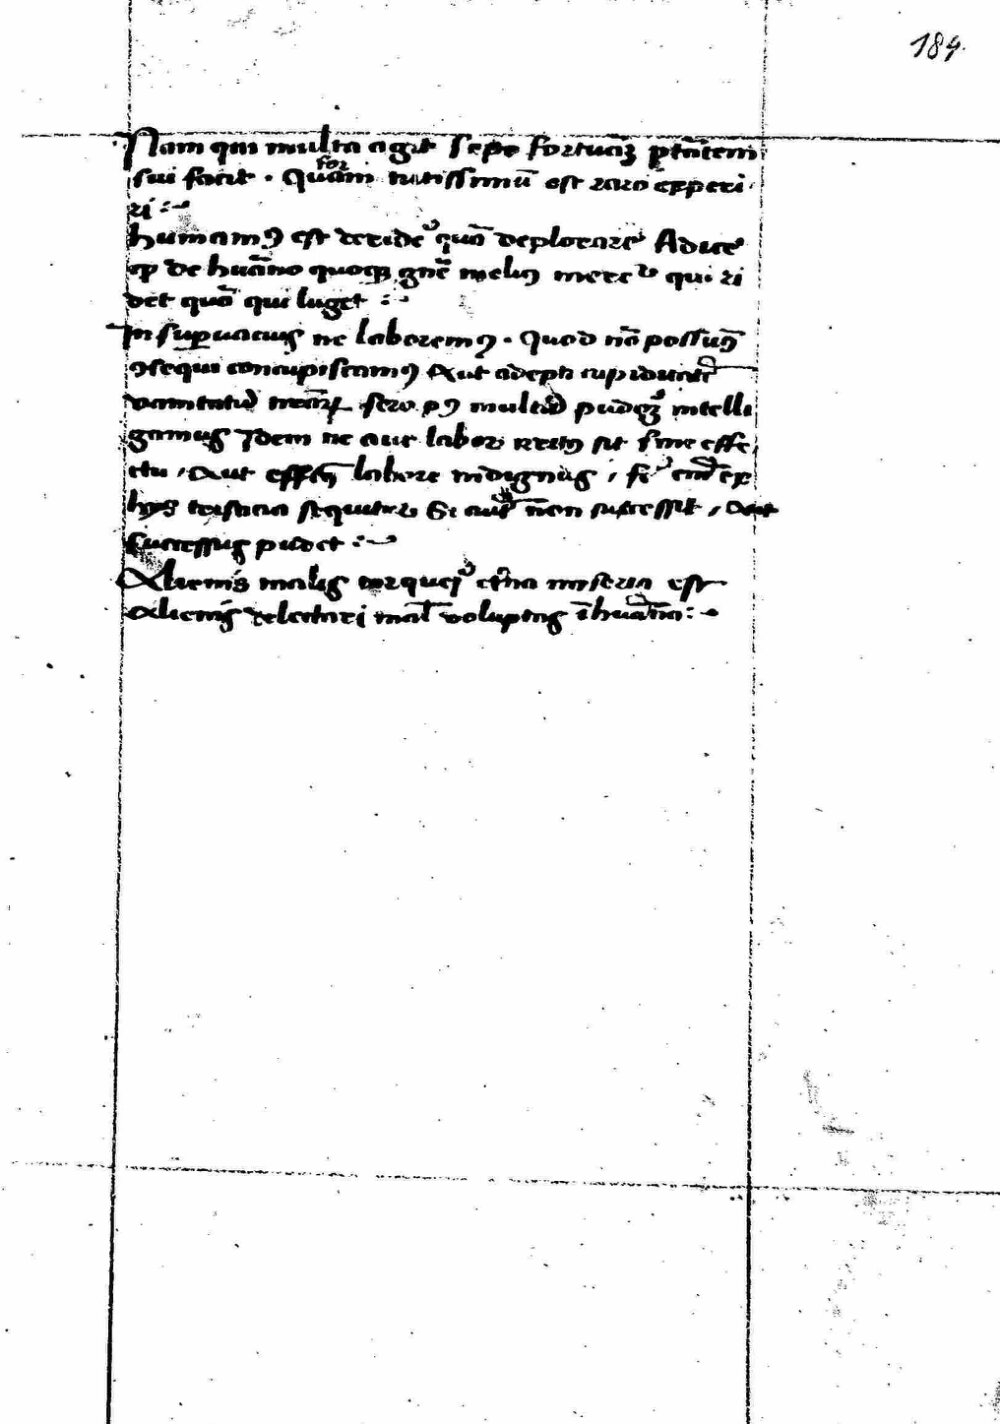 184
Nam qui multa agit sepe fortunā ptātem
sui facit . Quam for tutissimū est raro experi
ri
humanꝰ est deride quā deplorare Adice
qͥ de huāno quoqꝫ gn̄e meliꝰ meretr qui ri
det quā qui luget
In supuacuis ne laboremꝰ . Quod nō possumꝰ
ꝯsequi concupiscamꝰ Aut adepti cupiditatū
vanitatē sero pꝰ multū pudorē intelli
gamus Idem ne aut labor irritꝰ sit sine effe
ctu , Aut effectꝰ labore indignus , fe em̄ ex
hys tristicia sequitur Si aut non successit , Aut
successus pudet
Alienis malis torqueri et̄na miseria est
Alienis delectari mal voluptas īhuāna